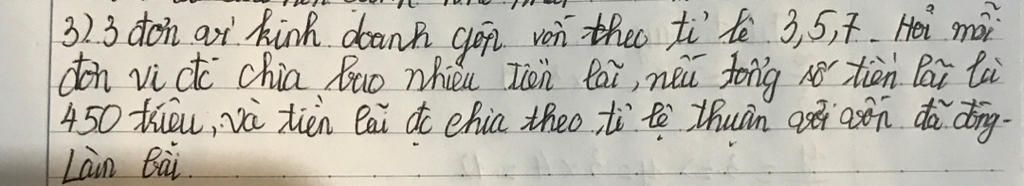 3) 3 đơn vị kinh doanh góp vốn theo tỉ lệ 3,5,7. Hỏi mỗi
đơn vị đc chia bao nhiêu tiền lãi, nếu tổng số tiền lãi là
450 triệu, và tiền lãi đc chia theo tỉ lệ thuận với vốn đã đóng.
Làm bài